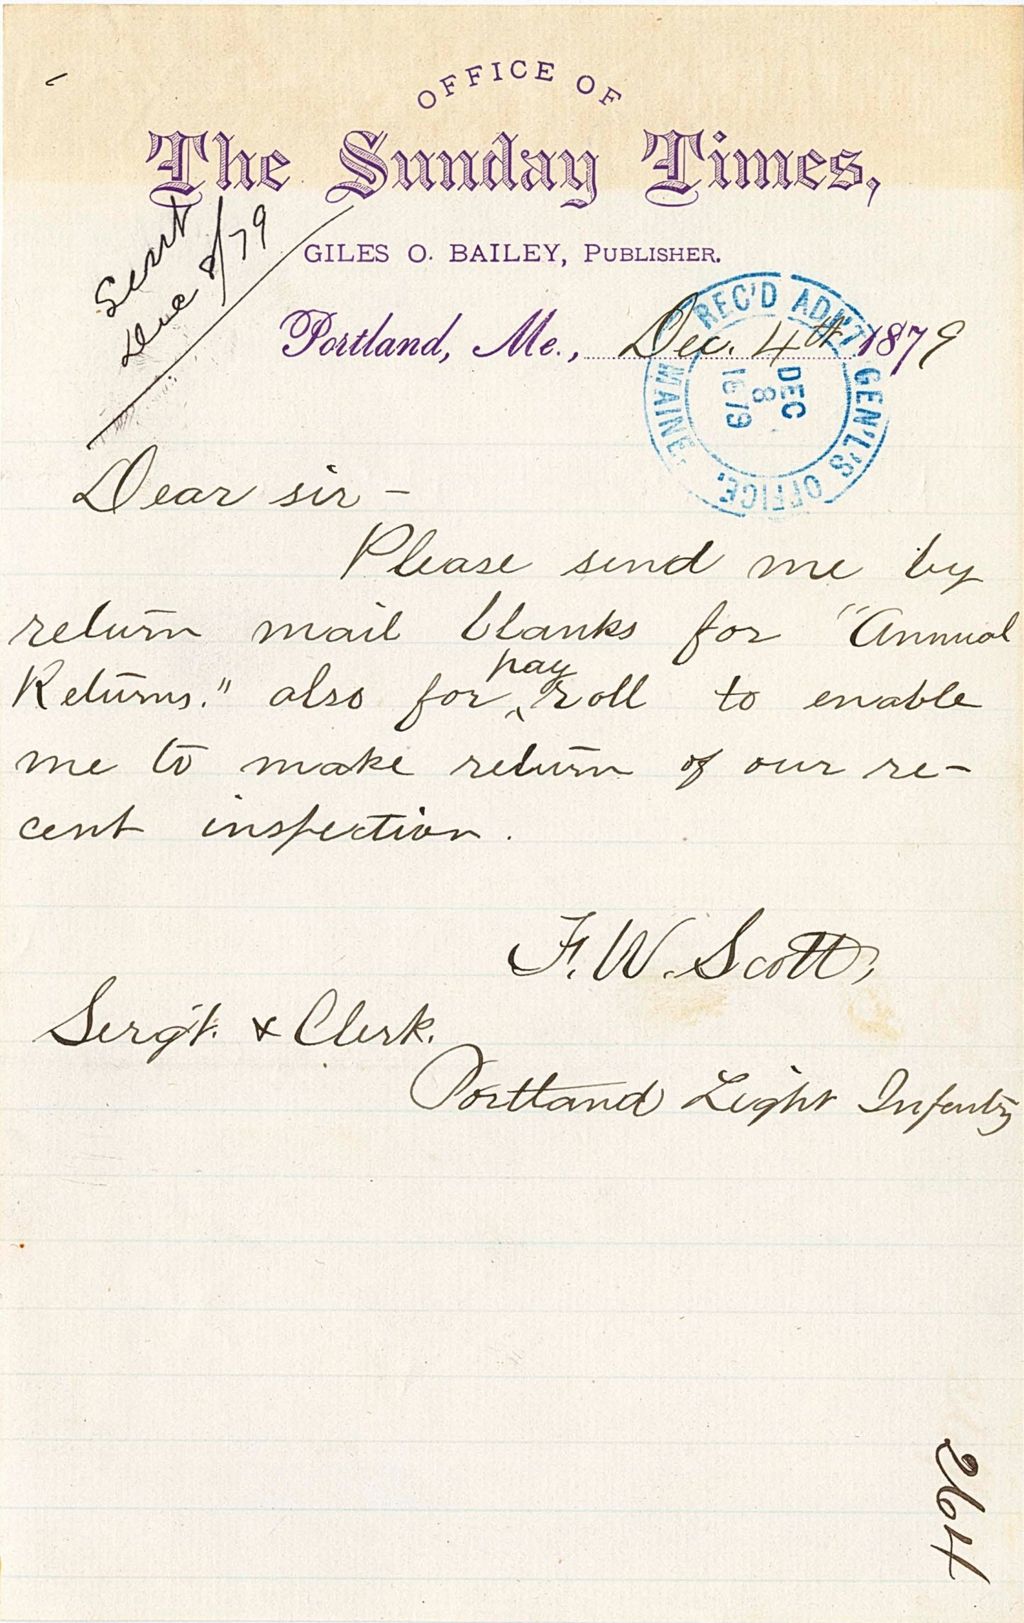 OFFICE OF
The Sunday Times,
GILES O. BAILEY, PUBLISHER.
Sent
Dec 8/79
Portland, Me., Dec. 4th 1879
REC'D ADJ'T GEN'L'S OFFICE. MAINE.
DEC
8
1879
Dear sir -
Please send me by
return mail blanks for "Annual
Returns." also for ‸ roll to enable
pay
me to make return of our re-
cent inspection.
F. W. Scott,
Sergt. & Clerk.
Portland Light Infantry
264